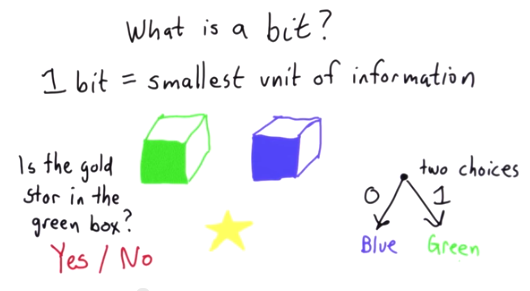 What is a bit?
1 bit = smallest unit of information
Is the gold
star in the
green box?
Yes / No
two choices
0 1
Blue Green